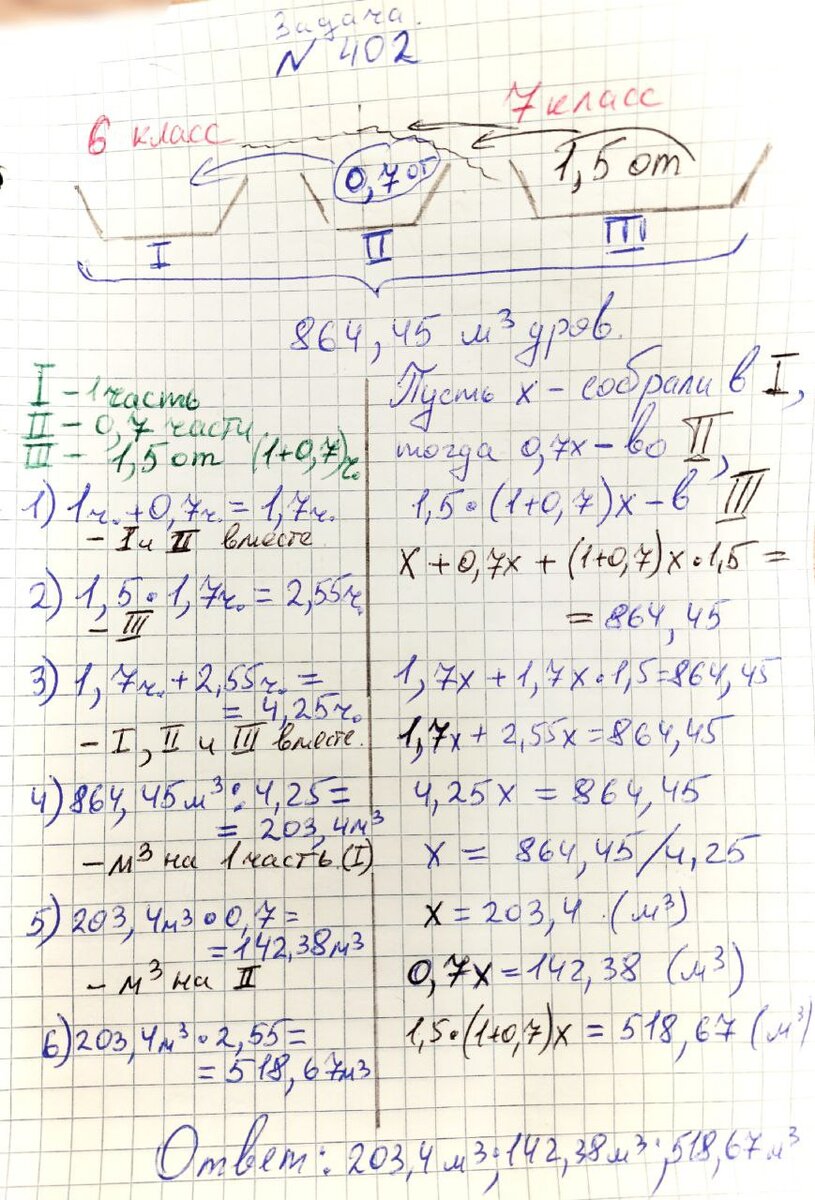 Задача.
N 402
6 класс
7 класс
0,7 от
1,5 от
I
II
III
864,45 м³ дров.
I - 1 часть
II - 0,7 части.
III - 1,5 от (1+0,7)ч.
1) 1ч.+0,7ч.= 1,7ч.
- I и II вместе
2) 1,5·1,7ч.= 2,55ч.
- III
3) 1,7ч.+2,55ч.=
= 4,25ч.
- I, II и III вместе.
4) 864,45м³:4,25=
= 203,4м³
- м³ на 1 часть (I)
5) 203,4м³·0,7=
=142,38м³
- м³ на II
6) 203,4м³·2,55=
= 518,67м³
Пусть x - собрали в I,
тогда 0,7x - во II,
1,5·(1+0,7)x - в III
x+0,7x+(1+0,7)x·1,5=
= 864,45
1,7x+1,7x·1,5=864,45
1,7x+2,55x=864,45
4,25x = 864,45
x = 864,45/4,25
x = 203,4 (м³)
0,7x=142,38 (м³)
1,5·(1+0,7)x = 518,67 (м³)
Ответ: 203,4м³; 142,38м³; 518,67м³